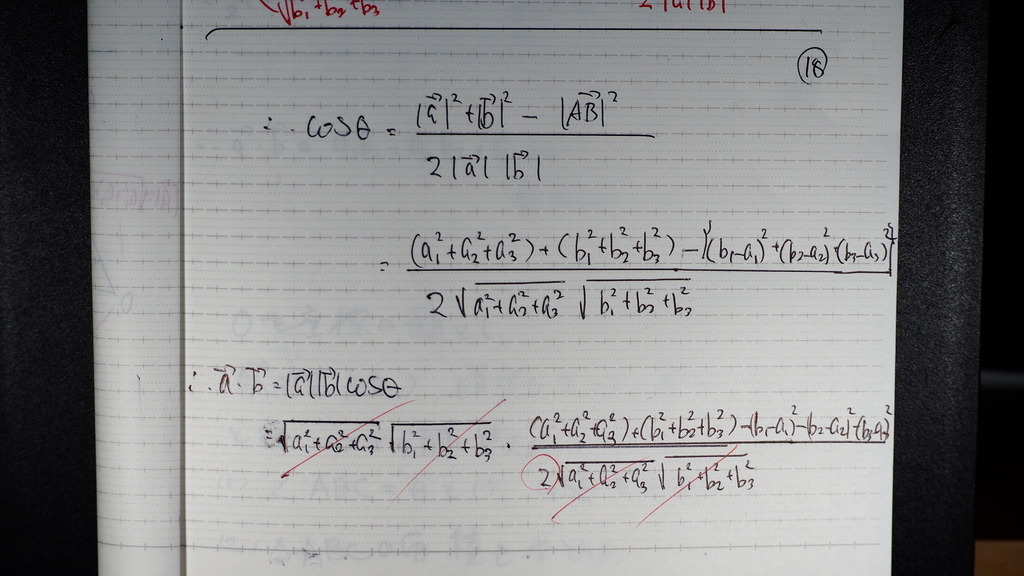 √b₁²+b₂²+b₃² 2|a||b|
⑱
∴ cosθ = (|a⃗|²+|b⃗|² − |AB⃗|²) / (2|a⃗| |b⃗|)
= ((a₁²+a₂²+a₃²) + (b₁²+b₂²+b₃²) − {(b₁−a₁)²+(b₂−a₂)²+(b₃−a₃)²}) / (2√(a₁²+a₂²+a₃²) √(b₁²+b₂²+b₃²))
∴ a⃗・b⃗ = |a⃗||b⃗|cosθ
= √(a₁²+a₂²+a₃²) √(b₁²+b₂²+b₃²) ・ ((a₁²+a₂²+a₃²)+(b₁²+b₂²+b₃²)−(b₁−a₁)²−(b₂−a₂)²−(b₃−a₃)²) / (2√(a₁²+a₂²+a₃²) √(b₁²+b₂²+b₃²))